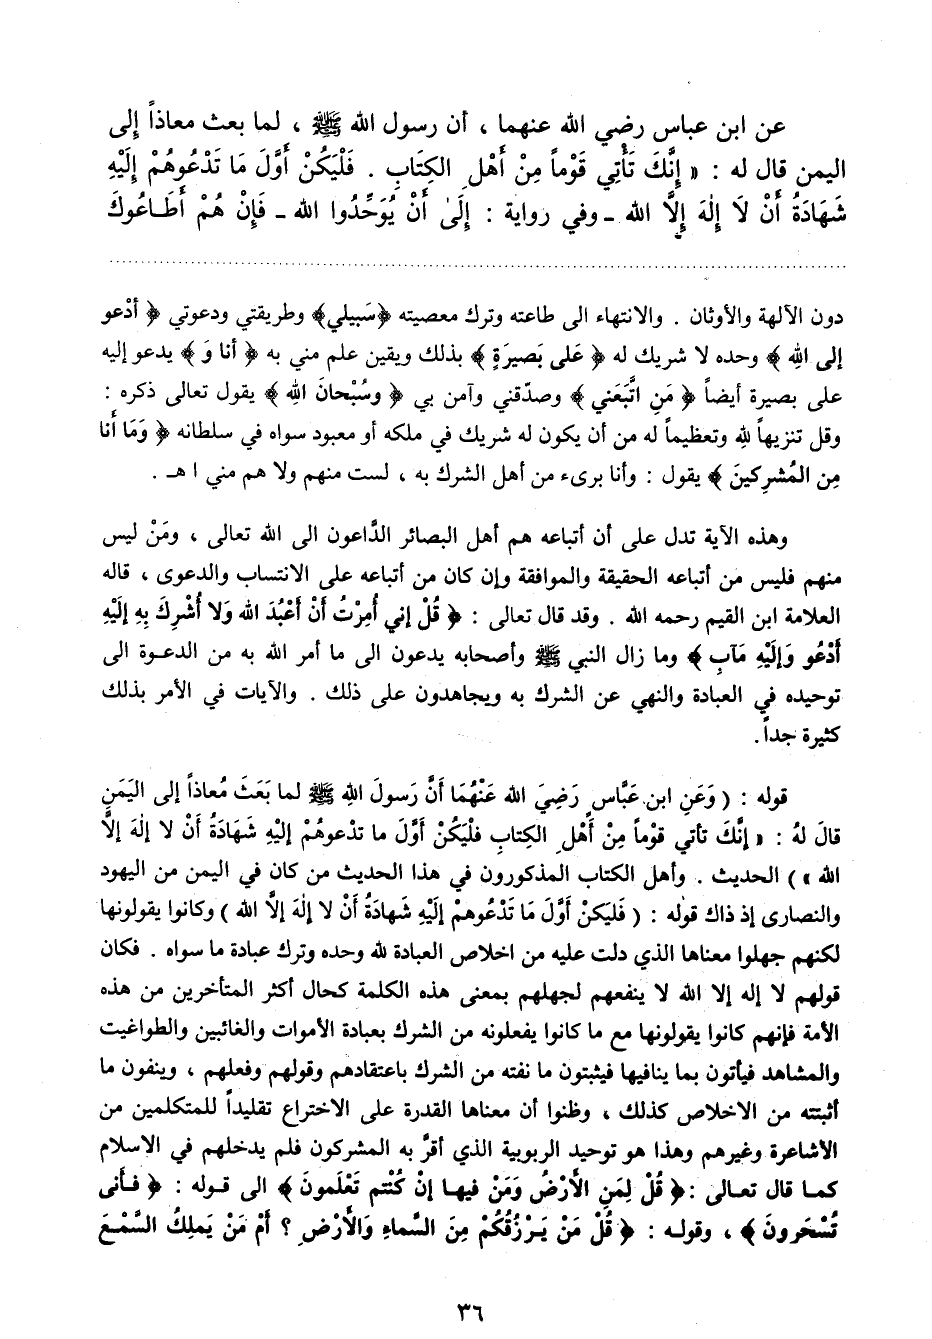 عن ابن عباس رضي الله عنهما ، أن رسول الله ﷺ ، لما بعث معاذاً إلى
اليمن قال له : « إِنَّكَ تَأْتِي قَوْماً مِنْ أَهْلِ الكِتَابِ . فَلْيَكُنْ أَوَّلَ مَا تَدْعُوهُمْ إِلَيْهِ
شَهَادَةُ أَنْ لَا إِلٰهَ إِلَّا الله ـ وفي رواية : إِلَىٰ أَنْ يُوَحِّدُوا الله ـ فَإِنْ هُمْ أَطَاعُوكَ
دون الآلهة والأوثان . والانتهاء الى طاعته وترك معصيته ﴿سَبيلي﴾ وطريقتي ودعوتي ﴿ أدْعو
إلى اللهِ ﴾ وحده لا شريك له ﴿ عَلى بَصيرَةٍ ﴾ بذلك ويقين علم مني به ﴿ أنا وَ ﴾ يدعو إليه
على بصيرة أيضاً ﴿ مَنِ اتَّبَعَني ﴾ وصدّقني وآمن بي ﴿ وسُبْحانَ اللهِ ﴾ يقول تعالى ذكره :
وقل تنزيهاً لله وتعظيماً له من أن يكون له شريك في ملكه أو معبود سواه في سلطانه ﴿ وَمَا أنا
مِن المُشرِكينَ ﴾ يقول : وأنا برىء من أهل الشرك به ، لست منهم ولا هم مني ا هـ .
وهذه الآية تدل على أن أتباعه هم أهل البصائر الدَّاعون الى الله تعالى ، ومَنْ ليس
منهم فليس من أتباعه الحقيقة والموافقة وإن كان من أتباعه على الانتساب والدعوى ، قاله
العلامة ابن القيم رحمه الله . وقد قال تعالى : ﴿ قُلْ إني أُمِرْتُ أَنْ أَعْبُدَ الله وَلا أُشْرِكَ بِهِ إلَيْهِ
أَدْعُو وَإلَيْهِ مَآبِ ﴾ وما زال النبي ﷺ وأصحابه يدعون الى ما أمر الله به من الدعـوة الى
توحيده في العبادة والنهي عن الشرك به ويجاهدون على ذلك . والآيات في الأمر بذلك
كثيرة جداً .
قوله : ( وَعَنِ ابنِ عَبَّاسٍ رَضِيَ الله عَنْهُمَا أَنَّ رَسولَ اللهِ ﷺ لما بَعَثَ مُعاذاً إلى اليَمَنِ
قالَ لهُ : « إنَّكَ تأتي قوْماً مِنْ أَهْلِ الكِتابِ فلْيَكُنْ أوَّلَ ما تدْعوهُمْ إليْهِ شَهادَةُ أنْ لا إلٰهَ إلَّا
الله » ) الحديث . وأهل الكتاب المذكورون في هذا الحديث من كان في اليمن من اليهود
والنصارى إذ ذاك قوله : ( فَليَكنْ أوَّلَ مَا تَدْعُوهمْ إلَيْهِ شهادَةُ أنْ لا إلٰهَ إلاَّ الله ) وكانوا يقولونها
لكنهم جهلوا معناها الذي دلت عليه من اخلاص العبادة لله وحده وترك عبادة ما سواه . فكان
قولهم لا إله إلا الله لا ينفعهم لجهلهم بمعنى هذه الكلمة كحال أكثر المتأخرين من هذه
الأمة فإنهم كانوا يقولونها مع ما كانوا يفعلونه من الشرك بعبادة الأموات والغائبين والطواغيت
والمشاهد فيأتون بما ينافيها فيثبتون ما نفته من الشرك باعتقادهم وقولهم وفعلهم ، وينفون ما
أثبتته من الاخلاص كذلك ، وظنوا أن معناها القدرة على الاختراع تقليداً للمتكلمين من
الأشاعرة وغيرهم وهذا هو توحيد الربوبية الذي أقرَّ به المشركون فلم يدخلهم في الاسلام
كمـا قال تعـالى :﴿ قُلْ لِمَنِ الأَرْضُ وَمَنْ فيهـا إنْ كُنْتم تَعْلَمونَ﴾ الى قـوله : ﴿ فـأَنى
تُسْحَرونَ ﴾ ، وقولـه : ﴿ قُلْ مَنْ يَـرْزُقُكُمْ مِنَ السَّماءِ وَالأَرْضِ ؟ أَمْ مَنْ يَملِكُ السَّمْعَ
٣٦